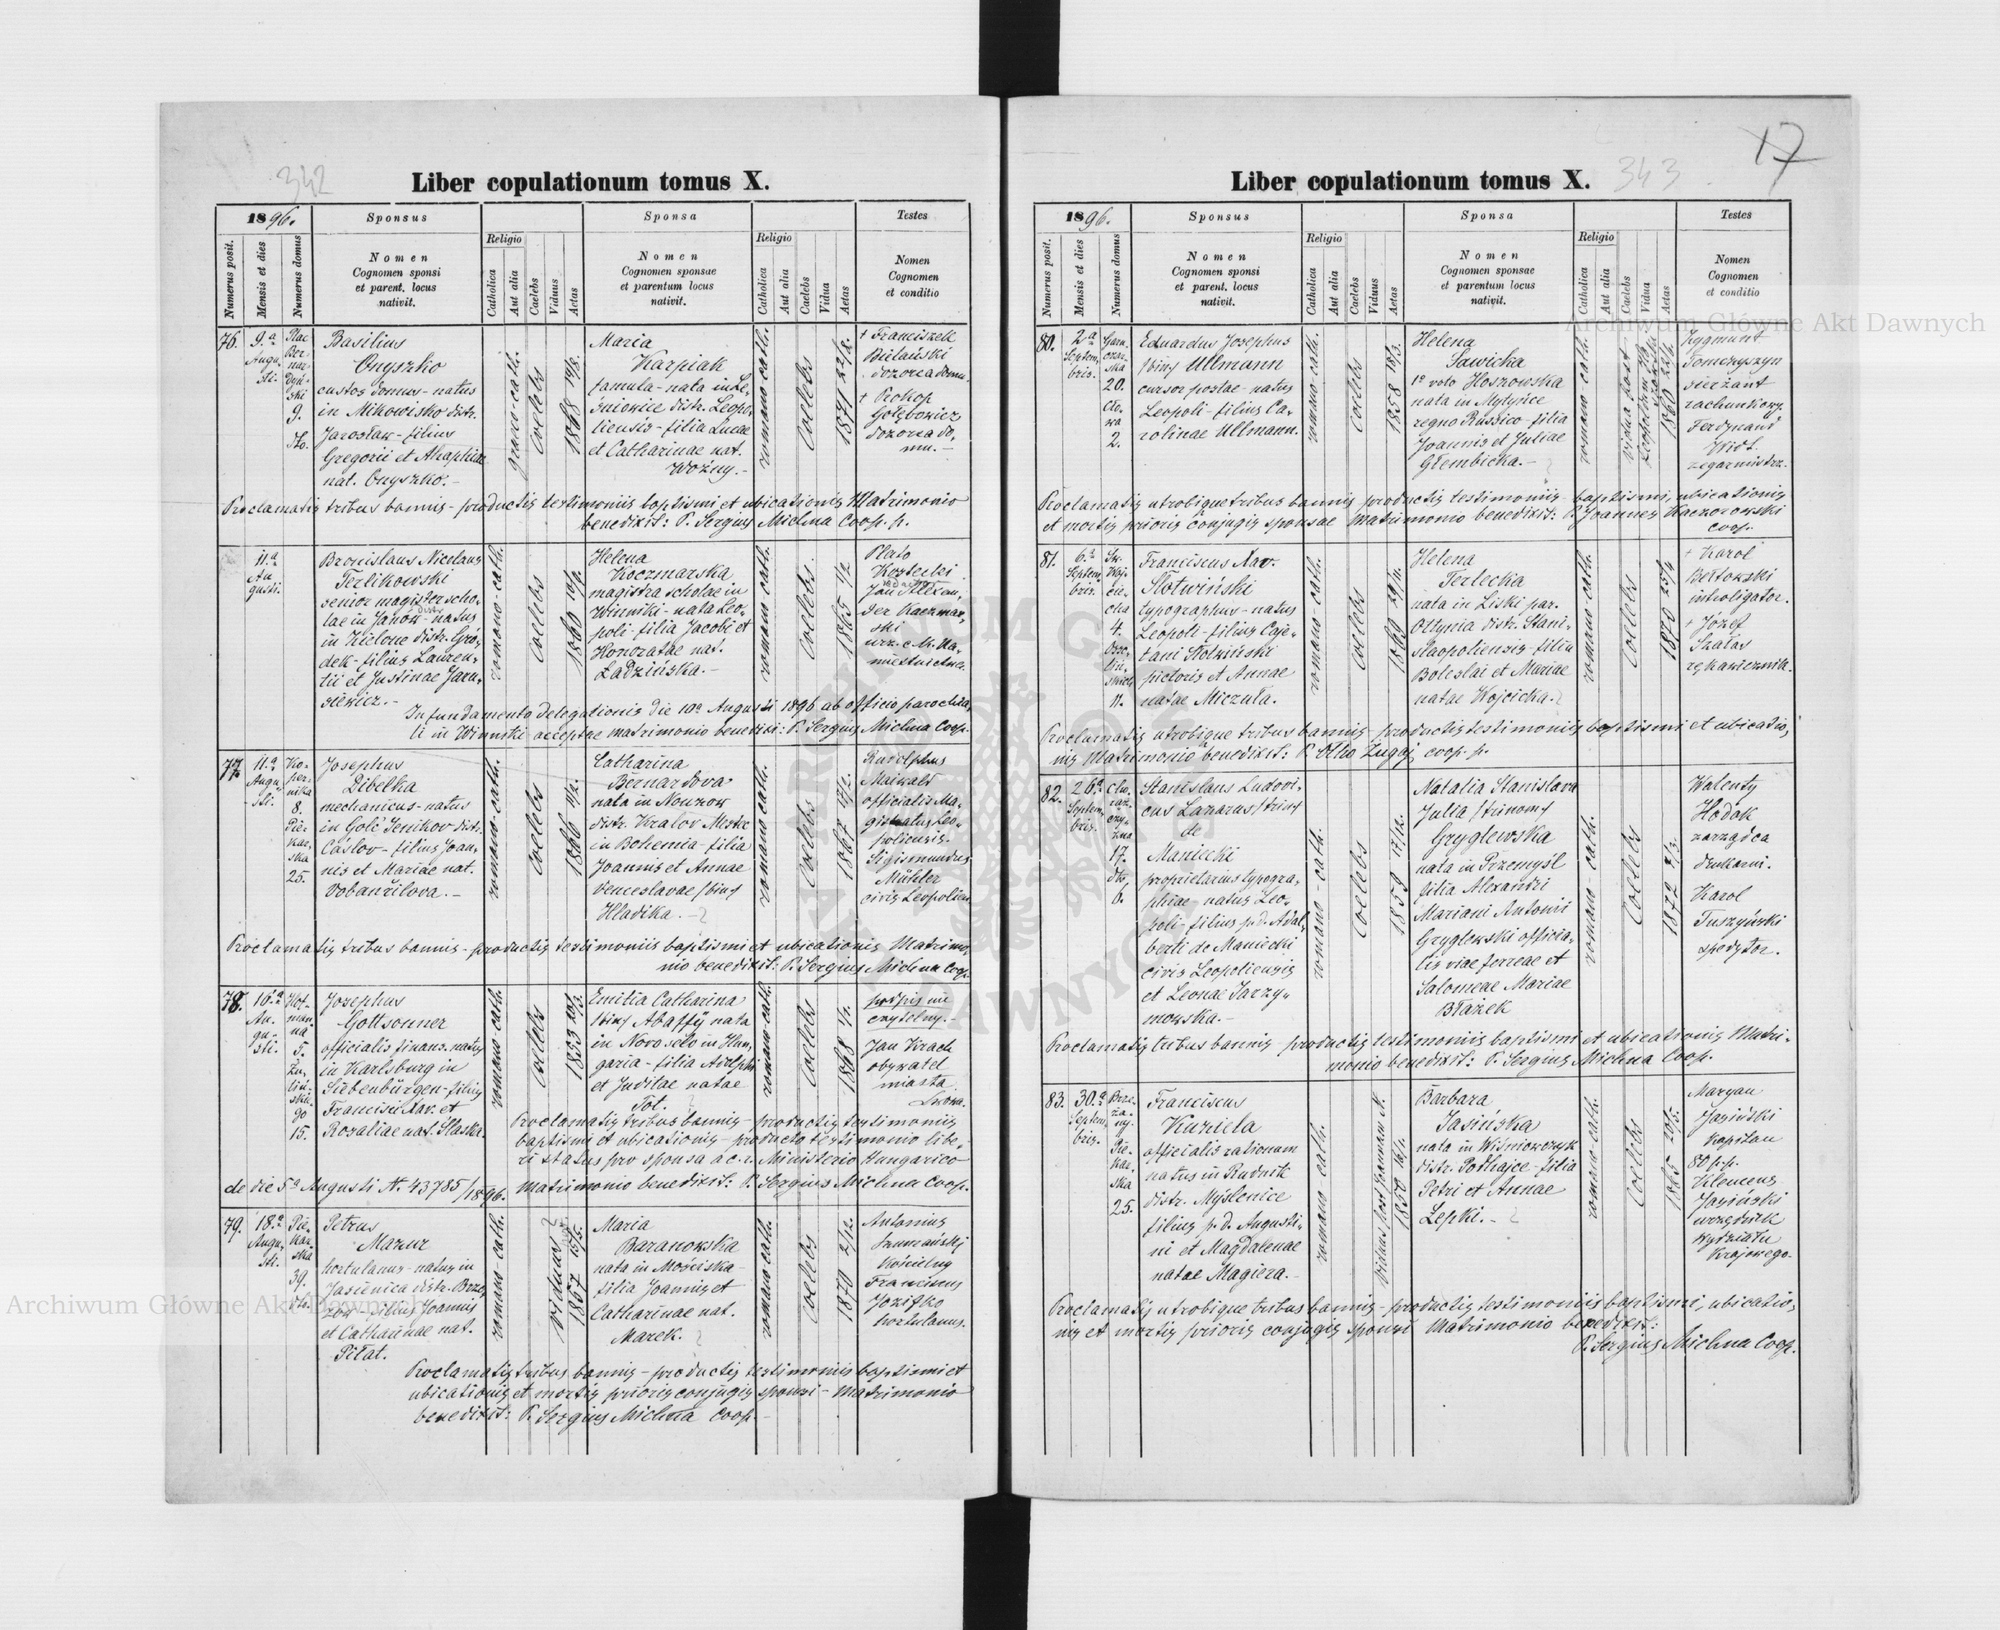 342
Liber copulationum tomus X.
1896.
Sponsus
Sponsa
Testes
Numerus posit.
Mensis et dies
Numerus domus
Nomen
Cognomen sponsi
et parent. locus
nativit.
Religio
Catholica
Aut alia
Caelebs
Viduus
Aetas
Nomen
Cognomen sponsae
et parentum locus
nativit.
Religio
Catholica
Aut alia
Caelebs
Vidua
Aetas
Nomen
Cognomen
et conditio
76.
9.a
Augu-
sti.
Plac
Ber-
nar-
dyń-
ski
9.
Basilius
Onyszko
custos domus - natus
in Mikowisko distr.
Jarosław - filius
Gregorii et Ahaphiae
nat. Onyszko. -
graeco-cath.
Coelebs
1868
Maria
Karpiak
famula - nata in Le-
śniowice distr. Leopo-
liensis - filia Lucae
et Catharinae nat.
Woźny. -
romano cath.
Coelebs
1871
† Franciszek
Bielański
dozorca domu.
† Prokop
Gołębowicz
dozorca do-
mu. -
Proclamatis tribus bannis - productis testimoniis baptismi et ubicationis Matrimonio
benedixit: P. Sergius Michna Coop. p.
11.a
Au
gusti.
Bronislaus Nicolaus
Terlikowski
senior magister scho-
lae in Janów - natus
in Kielone distr. Gró-
dek - filius Lauren-
tii et Justinae Jaru-
siewicz. -
romano-cath.
Coelebs
1860
Helena
Koczmarska
magistra scholae in
Winniki - nata Leo-
poli - filia Jacobi et
Honoratae nat.
Ładzińska. -
romano-cath.
Coelebs.
1865 1/2
Plato
Kostecki
Jan Alexan-
der Kaczmar-
ski
urz. c. k. Na-
miestnictwa.
In fundamento delegationis die 10a Augusti 1896 ab officio parochia-
li in Winniki acceptae matrimonio benedixi: P. Sergius Michna Coop.
77.
11.a
Augu-
sti.
Ko-
per-
nika
8.
Pie-
kar-
ska
25.
Josephus
Dibelka
mechanicus - natus
in Golč Jenikov distr.
Cáslov - filius Joan-
nis et Mariae nat.
Dobaňřilova. -
romano-cath.
Coelebs
1866
Catharina
Bernardova
nata in Nouzow
distr. Kralov Mestec
in Bohemia - filia
Joannis et Annae
Venceslavae /bin/
Hladika. -
romano cath.
Coelebs
1867
Rudolphus
Maiwald
officialis Ma-
gistratus Leo-
poliensis.
Sigismundus
Mühler
civis Leopolien.
Proclamatis tribus bannis - productis testimoniis baptismi et ubicationis Matrimo-
nio benedixit: P. Sergius Michna Coop.
78.
16.a
Au-
gu-
sti.
Hof-
man-
na
5.
Zu-
liń-
skie-
go
15.
Josephus
Gottsonner
officialis finans. natus
in Karlsburg in
Siebenbürgen - filius
Francisci Xav. et
Rozaliae nat. Slaska.
romano cath.
Coelebs
1853
Emilia Catharina
/bin/ Abaffÿ nata
in Novo selo in Hun-
garia - filia Adolphi
et Juditae natae
Tot.
romano-cath.
Coelebs
1868 1/2
podpis nie
czytelny. -
Jan Krach
obywatel
miasta
Lwowa.
Proclamatis tribus bannis - productis testimoniis
baptismi et ubicationis - producto testimonio libe-
ri status pro sponsa a c. r. Ministerio Hungarico
de die 5a Augusti N. 43785/1896. Matrimonio benedixit: P. Sergius Michna Coop.
79.
18.a
Augu-
sti.
Pie-
kar-
ska
39.
Petrus
Mazur
hortulanus - natus in
Jasienica distr. Brzo-
zów - filius Joannis
et Catharinae nat.
Piłat.
romano-cath.
Viduus
1857 15/5.
Maria
Baranowska
nata in Mościska -
filia Joannis et
Catharinae nat.
Marek.
romano-cath.
Coelebs
1870 2/12.
Antonius
Szumański
Kościelny
Franciscus
Josifko
hortulanus.
Proclamatis tribus bannis - productis testimoniis baptismi et
ubicationis et mortis prioris conjugis sponsi - Matrimonio
benedixit: P. Sergius Michna Coop. -
17
343
Liber copulationum tomus X.
1896.
Sponsus
Sponsa
Testes
Numerus posit.
Mensis et dies
Numerus domus
Nomen
Cognomen sponsi
et parent. locus
nativit.
Religio
Catholica
Aut alia
Caelebs
Viduus
Aetas
Nomen
Cognomen sponsae
et parentum locus
nativit.
Religio
Catholica
Aut alia
Caelebs
Vidua
Aetas
Nomen
Cognomen
et conditio
80.
2a
Septem-
bris.
Garn-
czar-
ska
20.
Cło-
wa
2.
Eduardus Josephus
/bin/ Ullmann
cursor postae - natus
Leopoli - filius Ca-
rolinae Ullmann.
romano-cath.
Coelebs
1858 18/3.
Helena
Sawicka
1o voto Hoszowska
nata in Mytyńce
regno Russico - filia
Joannis et Juliae
Głembicka. -
romano cath.
Vidua post
1860
Zygmunt
Tomczyszyn
sierżant
rachunkowy.
Ferdynand
Widt.
zegarmistrz.
Proclamatis utrobique tribus bannis productis testimoniis baptismi, ubicationis
et mortis prioris conjugis sponsae Matrimonio benedixit: P. Joannes Kaczorowski
coop.
81.
6.a
Septem-
bris.
Św.
Woj-
cie-
cha
4.
Osso-
liń-
skich
11.
Franciscus Xav.
Słotwiński
typographus - natus
Leopoli - filius Caje-
tani Słotwiński
pictoris et Annae
natae Miczuła.
romano-cath.
Coelebs
1860 29/11.
Helena
Terlecka
nata in Liski par.
Ottynia distr. Stani-
slaopoliensis - filia
Boleslai et Mariae
natae Wojcicka.
romano-cath.
Coelebs
1870 25/4
† Karol
Bełtowski
introligator.
† Józef
Szałas
rękawicznik.
Proclamatis utrobique tribus bannis productis testimoniis baptismi et ubicatio-
nis Matrimonio benedixit: P. Otho Zuggi, coop. p.
82.
26.a
Septem-
bris.
Cho-
rąż-
czy-
zna
17.
dto
6.
Stanislaus Ludovi-
cus Lazarus /trin/
de
Maniecki
proprietarius typogra-
phiae - natus Leo-
poli - filius p. d. Adal-
berti de Maniecki
civis Leopoliensis
et Leonae Jarzy-
mowska. -
romano-cath.
Coelebs
1859 17/12.
Natalia Stanislava
Julia /trinom/
Gryglewska
nata in Przemyśl
filia Alexandri
Mariani Antonii
Gryglewski officia-
lis viae ferreae et
Salomeae Mariae
Błażek
romano-cath.
Coelebs
1872
Walenty
Hodak
zarządca
drukarni.
Karol
Tuszyński
spedytor.
Proclamatis tribus bannis - productis testimoniis baptismi et ubicationis Matri-
monio benedixit: P. Sergius Michna Coop.
83.
30.a
Septem-
bris.
Brze-
ża-
ny.
Pie-
kar-
ska
25.
Franciscus
Kuziela
officialis rationum
natus in Rudnik
distr. Myślenice
filius p. d. Augusti-
ni et Magdalenae
natae Magiera. -
romano cath.
Viduus post Joannam N.
1850 16/1.
Barbara
Jasińska
nata in Wiśniowczyk
distr. Podhajce - filia
Petri et Annae
Lepki. -
romano-cath.
Coelebs
1865 20/5.
Maryan
Jasiński
Kapitan
80 p.p.
Klemens
Jasiński
urzędnik
Wydziału
Krajowego.
Proclamatis utrobique tribus bannis - productis testimoniis baptismi, ubicatio-
nis et mortis prioris conjugis sponsi Matrimonio benedixit:
P. Sergius Michna Coop.
Archiwum Główne Akt Dawnych
Archiwum Główne Akt Dawnych